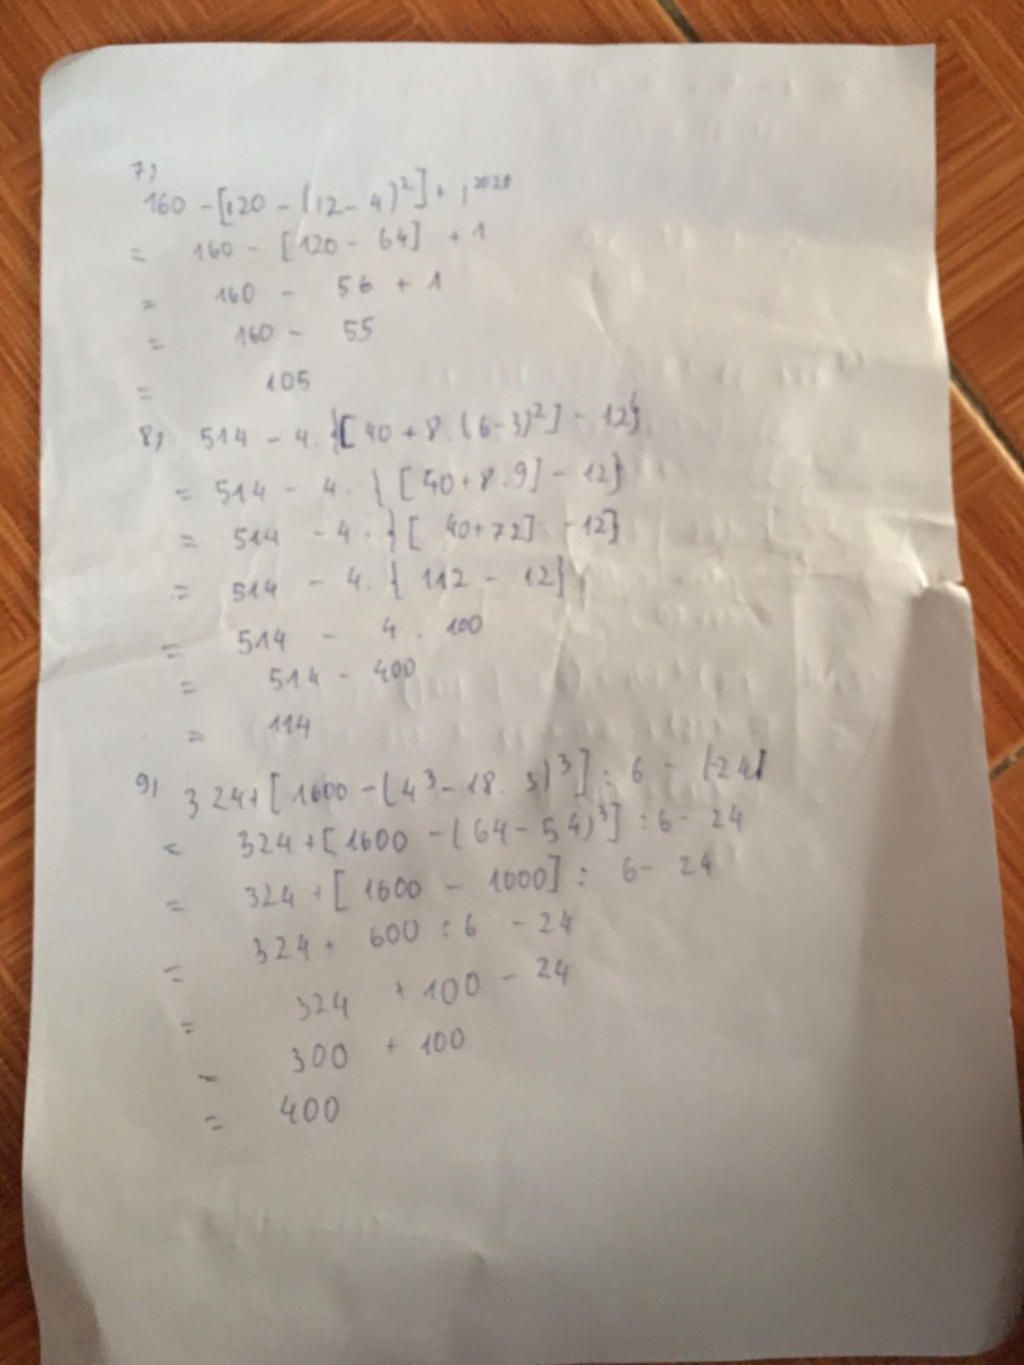 7,
160 - [120 - (12 - 4)²] + 1²⁰²⁰
= 160 - [120 - 64] + 1
= 160 - 56 + 1
= 160 - 55
= 105
8, 514 - 4 . {[40 + 8 . (6 - 3)²] - 12}
= 514 - 4 . {[40 + 8 . 9] - 12}
= 514 - 4 . {[40 + 72] - 12}
= 514 - 4 . {112 - 12}
= 514 - 4 . 100
= 514 - 400
= 114
9, 324 + [1600 - (4³ - 18 . 3)³] : 6 - |-24|
= 324 + [1600 - (64 - 54)³] : 6 - 24
= 324 + [1600 - 1000] : 6 - 24
= 324 + 600 : 6 - 24
= 324 + 100 - 24
= 300 + 100
= 400